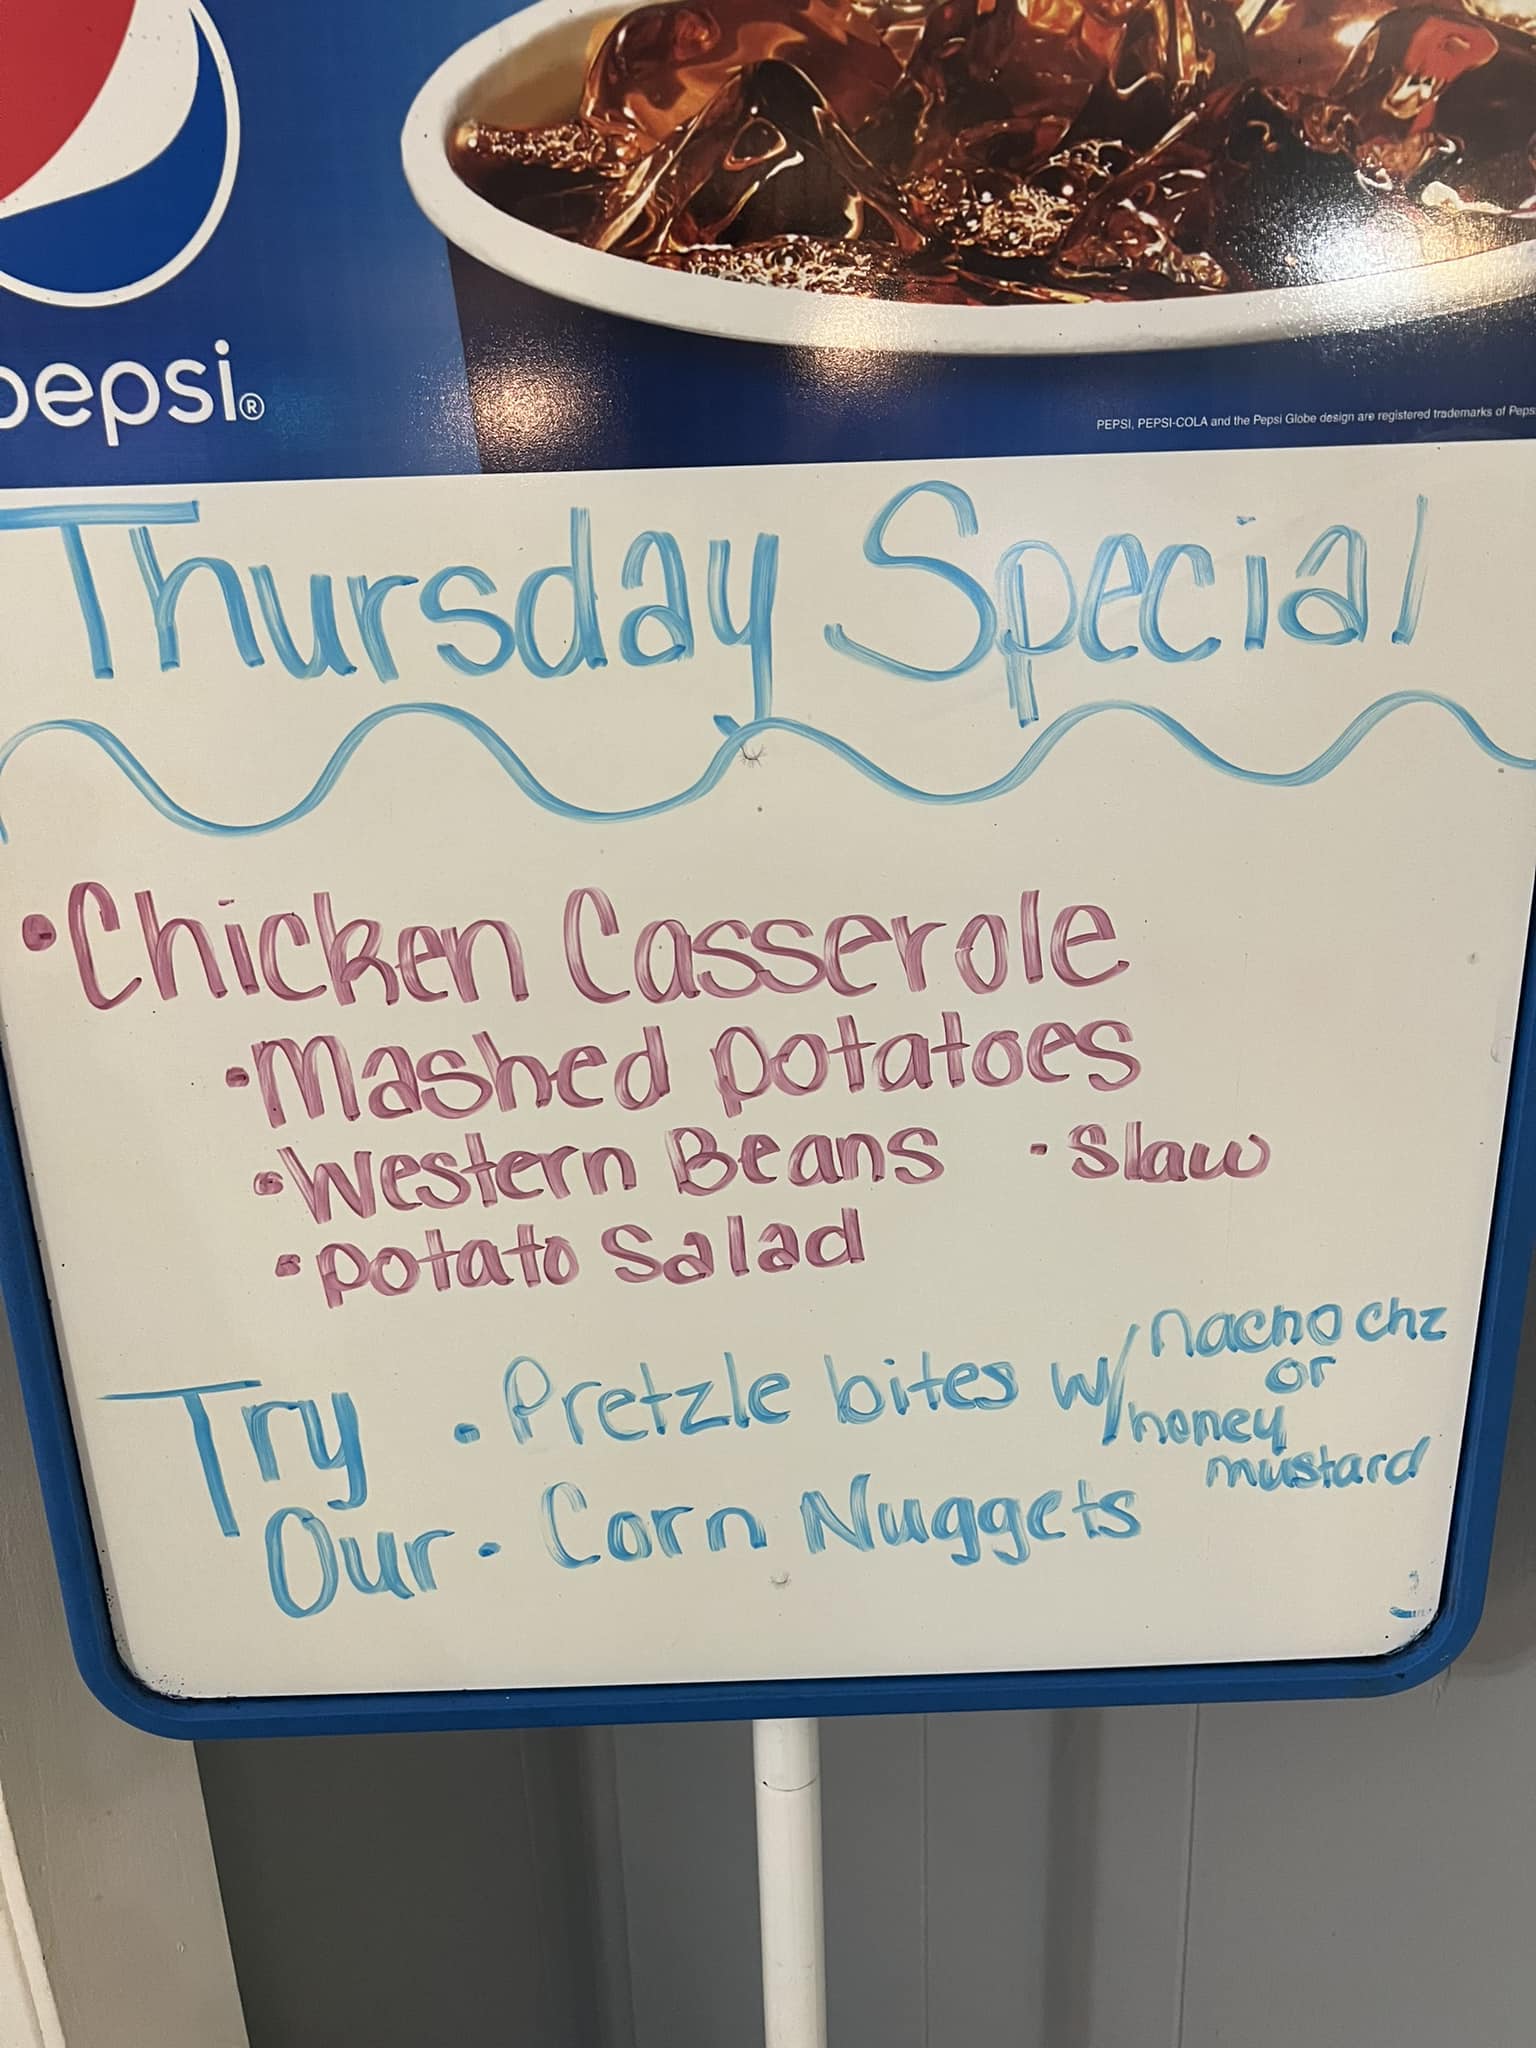 pepsi®
PEPSI, PEPSI-COLA and the Pepsi Globe design are registered trademarks of
Thursday Special
•Chicken Casserole
•Mashed potatoes
•Western Beans •Slaw
•potato Salad
Try •Pretzle bites w/ nacho chz
or
honey
mustard
Our •Corn Nuggets